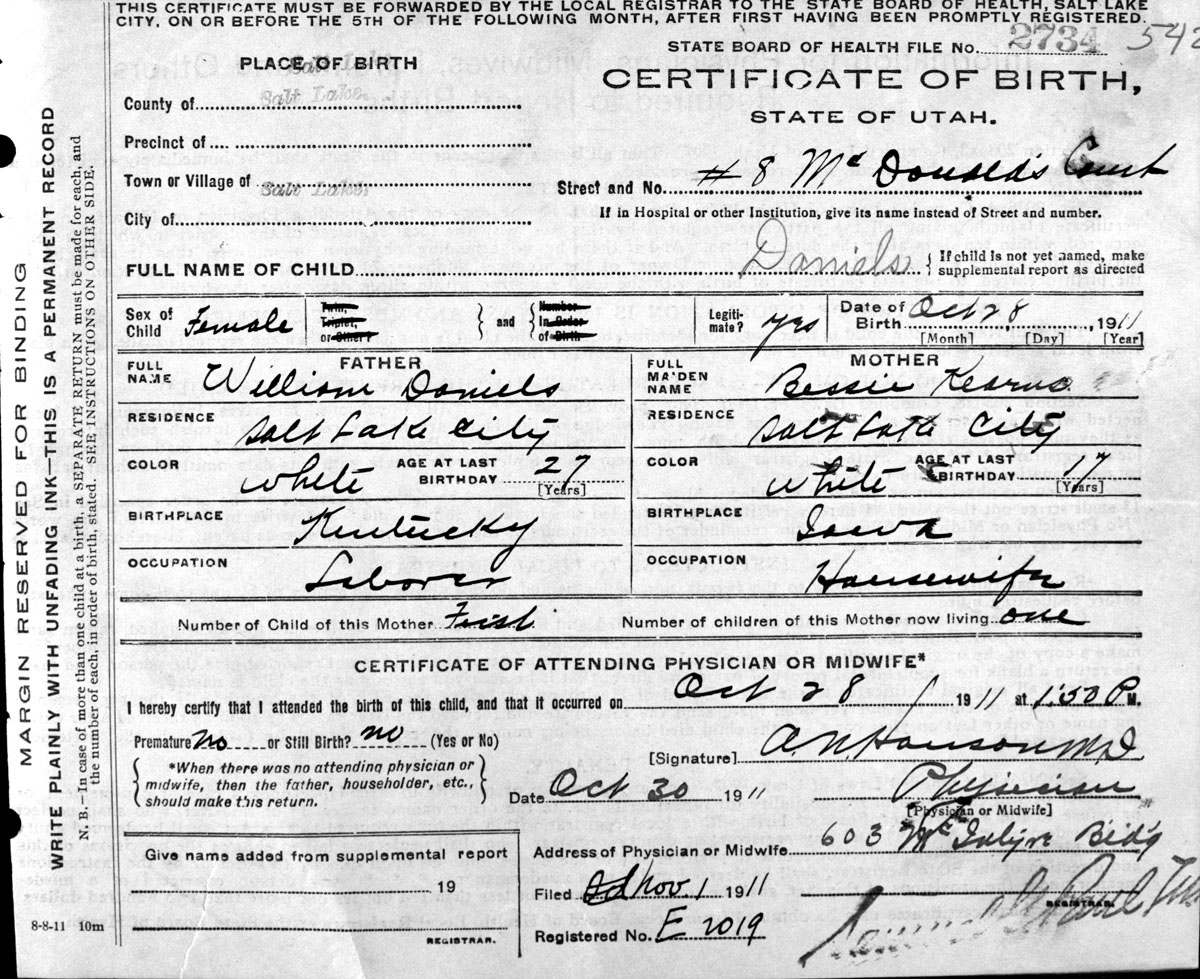 THIS CERTIFICATE MUST BE FORWARDED BY THE LOCAL REGISTRAR TO THE STATE BOARD OF HEALTH, SALT LAKE
CITY, ON OR BEFORE THE 5TH OF THE FOLLOWING MONTH, AFTER FIRST HAVING BEEN PROMPTLY REGISTERED.
STATE BOARD OF HEALTH FILE No. 2734 542
PLACE OF BIRTH
CERTIFICATE OF BIRTH,
STATE OF UTAH.
County of Salt Lake
Precinct of
Town or Village of Salt Lake
Street and No. #8 McDonald's Court
City of
If in Hospital or other Institution, give its name instead of Street and number.
FULL NAME OF CHILD Daniels { If child is not yet named, make
supplemental report as directed
Sex of Child Female { Twin, Triplet, or Other? } and { Number In Order of Birth Legitimate? yes Date of Birth Oct 28, 1911
[Month] [Day] [Year]
FATHER MOTHER
FULL NAME William Daniels FULL MAIDEN NAME Bessie Kearns
RESIDENCE Salt Lake City RESIDENCE Salt Lake City
COLOR White AGE AT LAST BIRTHDAY 27 [Years] COLOR White AGE AT LAST BIRTHDAY 17 [Years]
BIRTHPLACE Kentucky BIRTHPLACE Iowa
OCCUPATION Laborer OCCUPATION Housewife
Number of Child of this Mother First Number of children of this Mother now living one
CERTIFICATE OF ATTENDING PHYSICIAN OR MIDWIFE*
I hereby certify that I attended the birth of this child, and that it occurred on Oct 28, 1911 at 1:50 P M.
Premature no or Still Birth? no (Yes or No)
[Signature] A.N. Hanson MD
{ *When there was no attending physician or
midwife, then the father, householder, etc.,
should make this return. }
Date Oct 30 1911 Physician
[Physician or Midwife]
Address of Physician or Midwife 603 McIntyre Bldg
Give name added from supplemental report
19
Filed Nov 1 1911
REGISTRAR.
Registered No. E 2019
8-8-11 10m
REGISTRAR.
MARGIN RESERVED FOR BINDING
WRITE PLAINLY WITH UNFADING INK-THIS IS A PERMANENT RECORD
N. B.-In case of more than one child at a birth, a SEPARATE RETURN must be made for each, and
the number of each, in order of birth, stated. SEE INSTRUCTIONS ON OTHER SIDE.